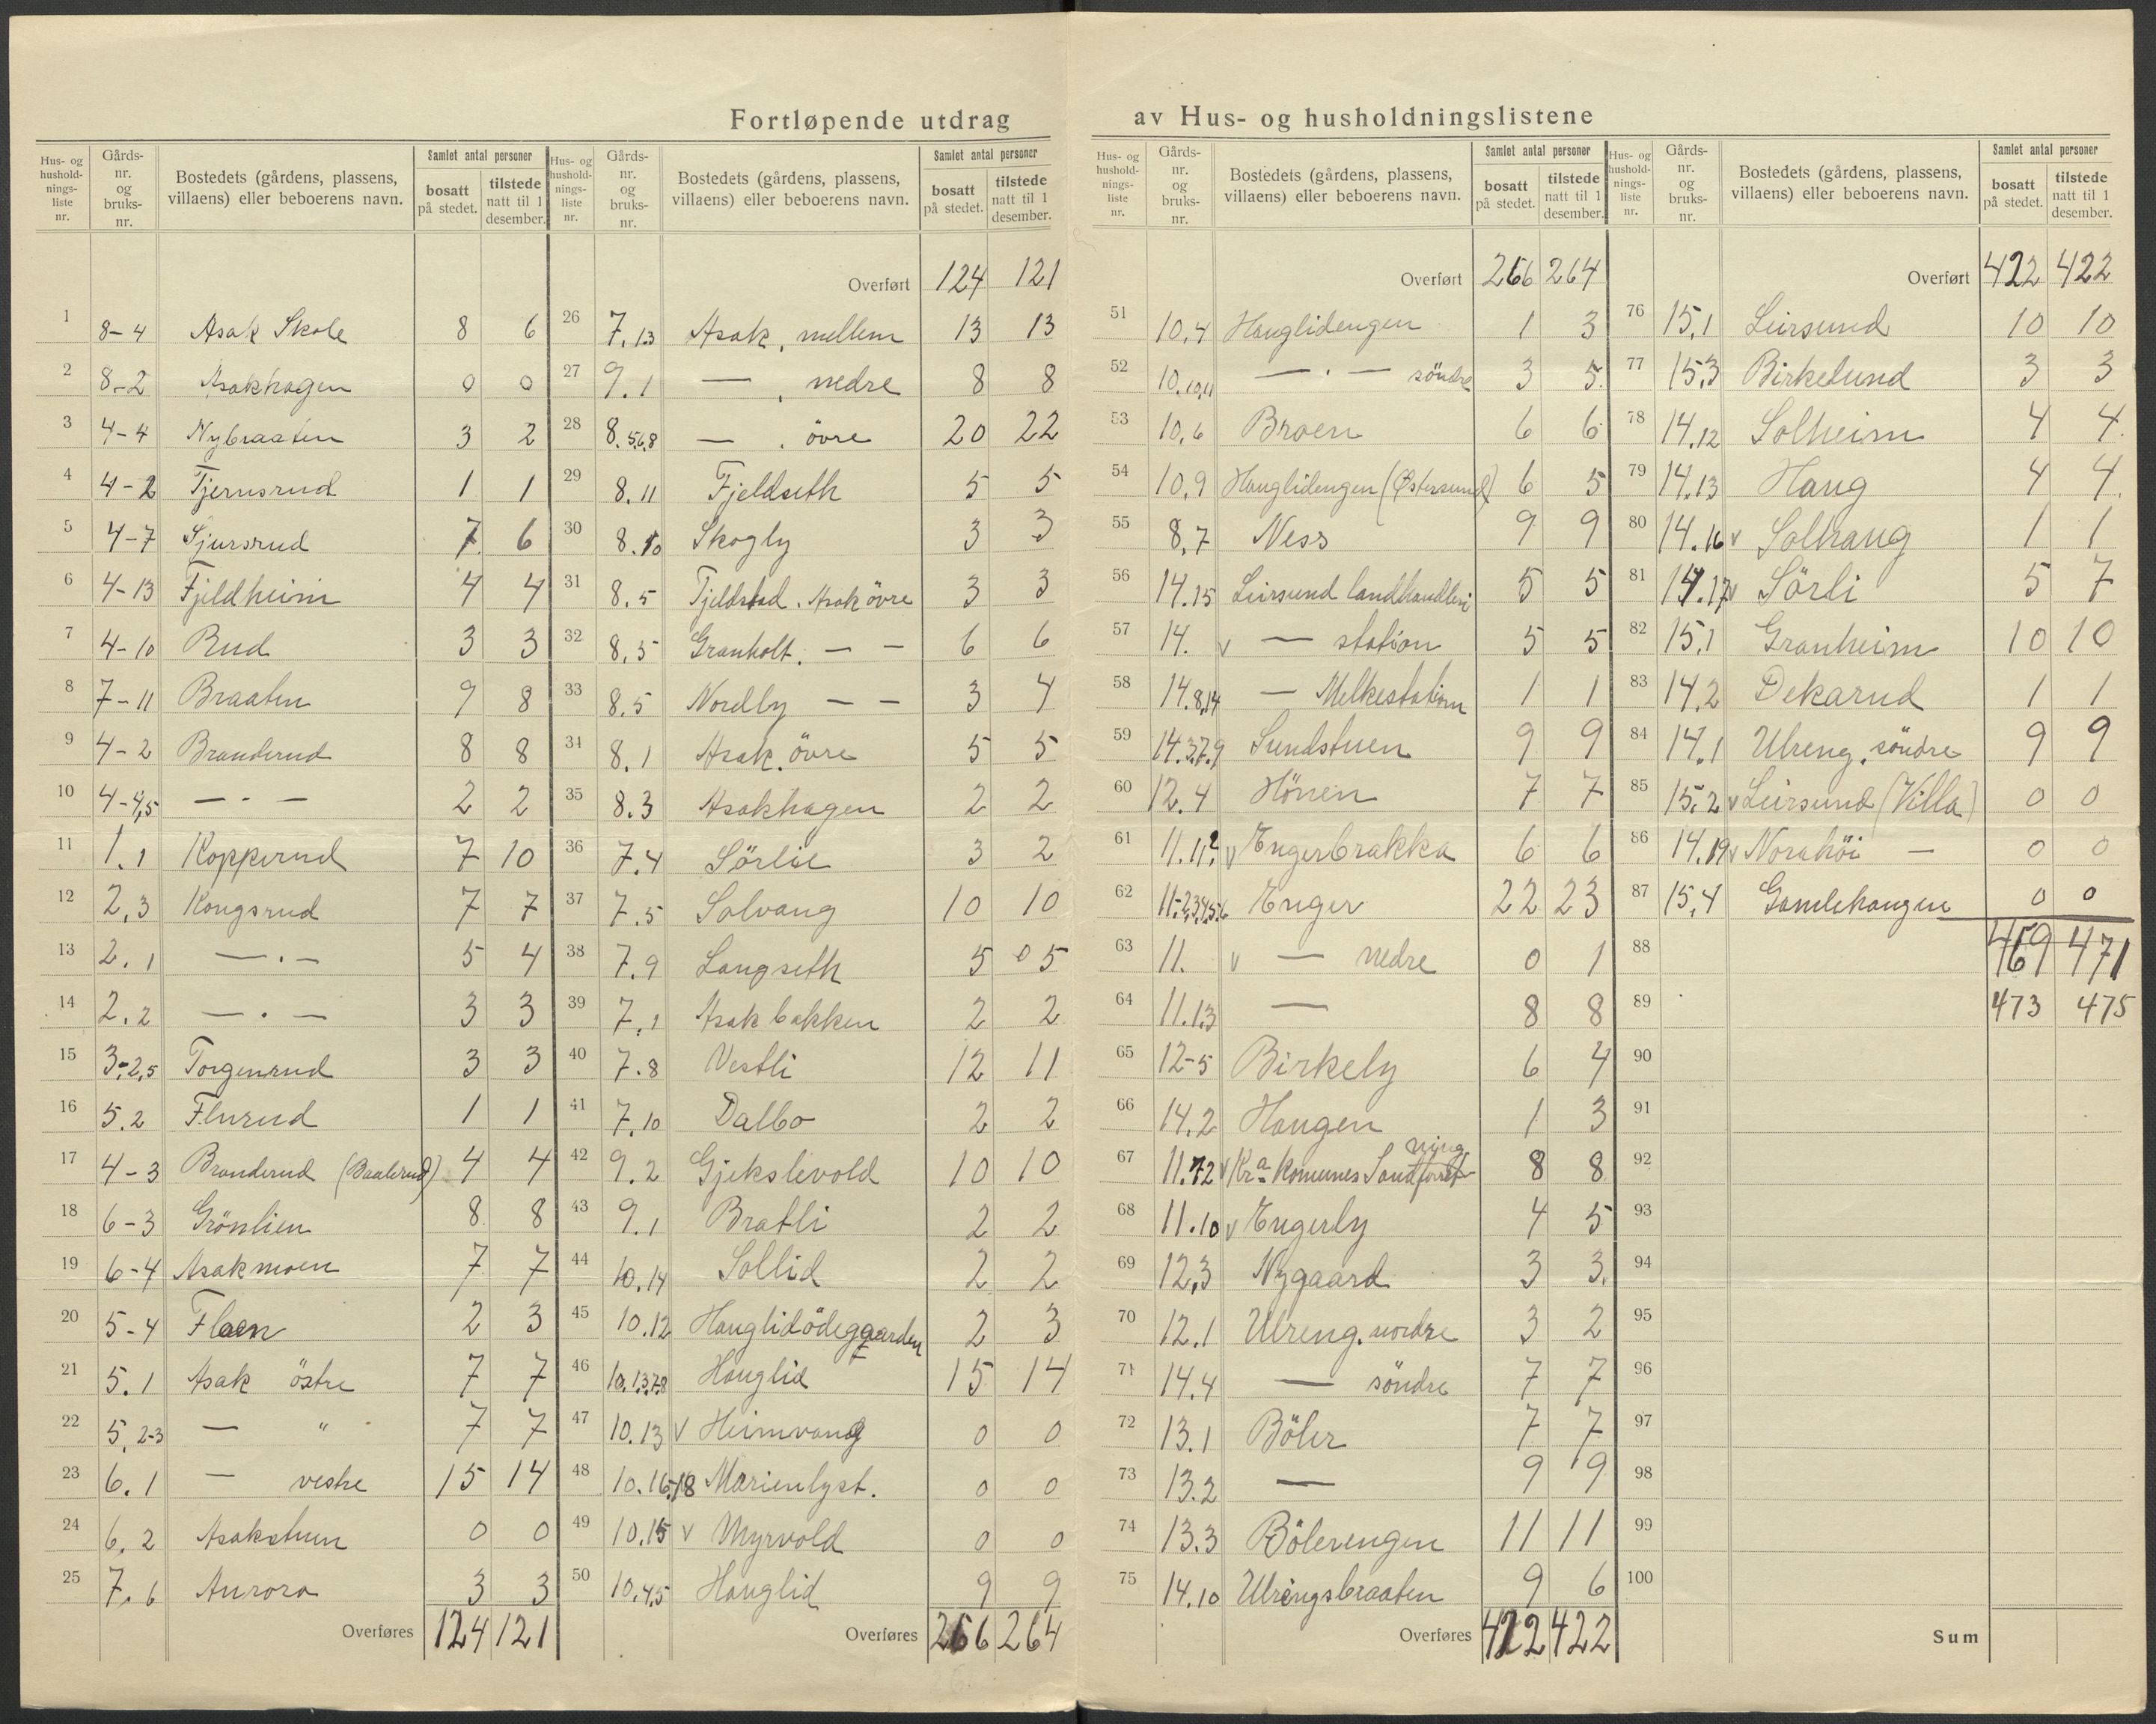 Fortløpende utdrag av Hus- og husholdningslistene
Hus- og hushold-nings-liste nr. | Gårds-nr. og bruks-nr. | Bostedets (gårdens, plassens, villaens) eller beboerens navn. | Samlet antal personer | bosatt på stedet. | tilstede natt til 1 desember.
1 8-4 Asak Skole 8 6
2 8-2 Asakhagen 0 0
3 4-4 Nybraaten 3 2
4 4-2 Tjernsrud 1 1
5 4-7 Sjursrud 7 6
6 4-13 Fjeldheim 4 4
7 4-10 Rud 3 3
8 7-11 Braaten 9 8
9 4-2 Branderud 8 8
10 4-4,5 — · — 2 2
11 1.1 Kopperud 7 10
12 2,3 Kongsrud 7 7
13 2.1 — · — 5 4
14 2.2 — · — 3 3
15 3-2,5 Torgenrud 3 3
16 5.2 Flurud 1 1
17 4-3 Branderud (Baalerud) 4 4
18 6-3 Grönlien 8 8
19 6-4 Asakmoen 7 7
20 5-4 Flaen 2 3
21 5.1 Asak östre 7 7
22 5.2-3 — " 7 7
23 6.1 — vestre 15 14
24 6.2 Asakstuen 0 0
25 7.6 Aurora 3 3
Overføres 124 121
Hus- og hushold-nings-liste nr. | Gårds-nr. og bruks-nr. | Bostedets (gårdens, plassens, villaens) eller beboerens navn. | Samlet antal personer | bosatt på stedet. | tilstede natt til 1 desember.
Overført 124 121
26 7.13 Asak, mellem 13 13
27 9.1 — , nedre 8 8
28 8.5,6,8 — . övre 20 22
29 8.11 Fjeldseth 5 5
30 8.10 Skogly 3 3
31 8.5 Fjeldstad. Asak övre 3 3
32 8.5 Granholt. — — 6 6
33 8.5 Nordby — — 3 4
34 8.1 Asak. övre 5 5
35 8.3 Asakhagen 2 2
36 7.4 Sörlie 3 2
37 7.5 Solvang 10 10
38 7.9 Langseth 5 5
39 7.1 Asakbakken 2 2
40 7.8 Vestli 12 11
41 7.10 Dalbo 2 2
42 9.2 Gjekslevold 10 10
43 9.1 Bratli 2 2
44 10.14 Sollid 2 2
45 10.12 Hauglidödeggaarden 2 3
46 10.1,3,7,8 Hauglid 15 14
47 10.13 v Heimvang 0 0
48 10.16-18 Marienlyst. 0 0
49 10.15 v Myrvold 0 0
50 10.4,5 Hauglid 9 9
Overføres 266 264
Hus- og hushold-nings-liste nr. | Gårds-nr. og bruks-nr. | Bostedets (gårdens, plassens, villaens) eller beboerens navn. | Samlet antal personer | bosatt på stedet. | tilstede natt til 1 desember.
Overført 266 264
51 10.4 Hauglidengen 1 3
52 10.10,11 — · — söndre 3 5
53 10,6 Broen 6 6
54 10,9 Hauglidengen (Østersund) 6 5
55 8,7 Ness 9 9
56 14.15 Leirsund landhandleri 5 5
57 14. v — station 5 5
58 14.8,14 — Melkestation 1 1
59 14.3,7,9 Sundstuen 9 9
60 12.4 Hönen 7 7
61 11.11 v Engerbrakka 6 6
62 11-2,3,4,5,6 Enger 22 23
63 11. v — nedre 0 1
64 11.13 — 8 8
65 12-5 Birkely 6 4
66 14.2 Haugen 1 3
67 11.72 v Kra Komunes Sandforretning 8 8
68 11.10 v Engerly 4 5
69 12,3 Nygaard 3 3
70 12.1 Ulreng. nordre 3 2
71 14.4 — söndre 7 7
72 13.1 Böler 7 7
73 13.2 — 9 9
74 13.3 Bölerengen 11 11
75 14.10 Ulrengsbraaten 9 6
Overføres 422 422
Hus- og hushold-nings-liste nr. | Gårds-nr. og bruks-nr. | Bostedets (gårdens, plassens, villaens) eller beboerens navn. | Samlet antal personer | bosatt på stedet. | tilstede natt til 1 desember.
Overført 422 422
76 15.1 Leirsund 10 10
77 15.3 Birkelund 3 3
78 14.12 Solheim 4 4
79 14.13 Haug 4 4
80 14.16 v Solhaug 1 1
81 14.17 v Sörli 5 7
82 15.1 Granheim 10 10
83 14.2 Dekarud 1 1
84 14.1 Ulreng. söndre 9 9
85 15.2 v Leirsund (Villa) 0 0
86 14.19 v Norahöi — 0 0
87 15,4 Gamlehaugen 0 0
88 469 471
89 473 475
90
91
92
93
94
95
96
97
98
99
100
Sum